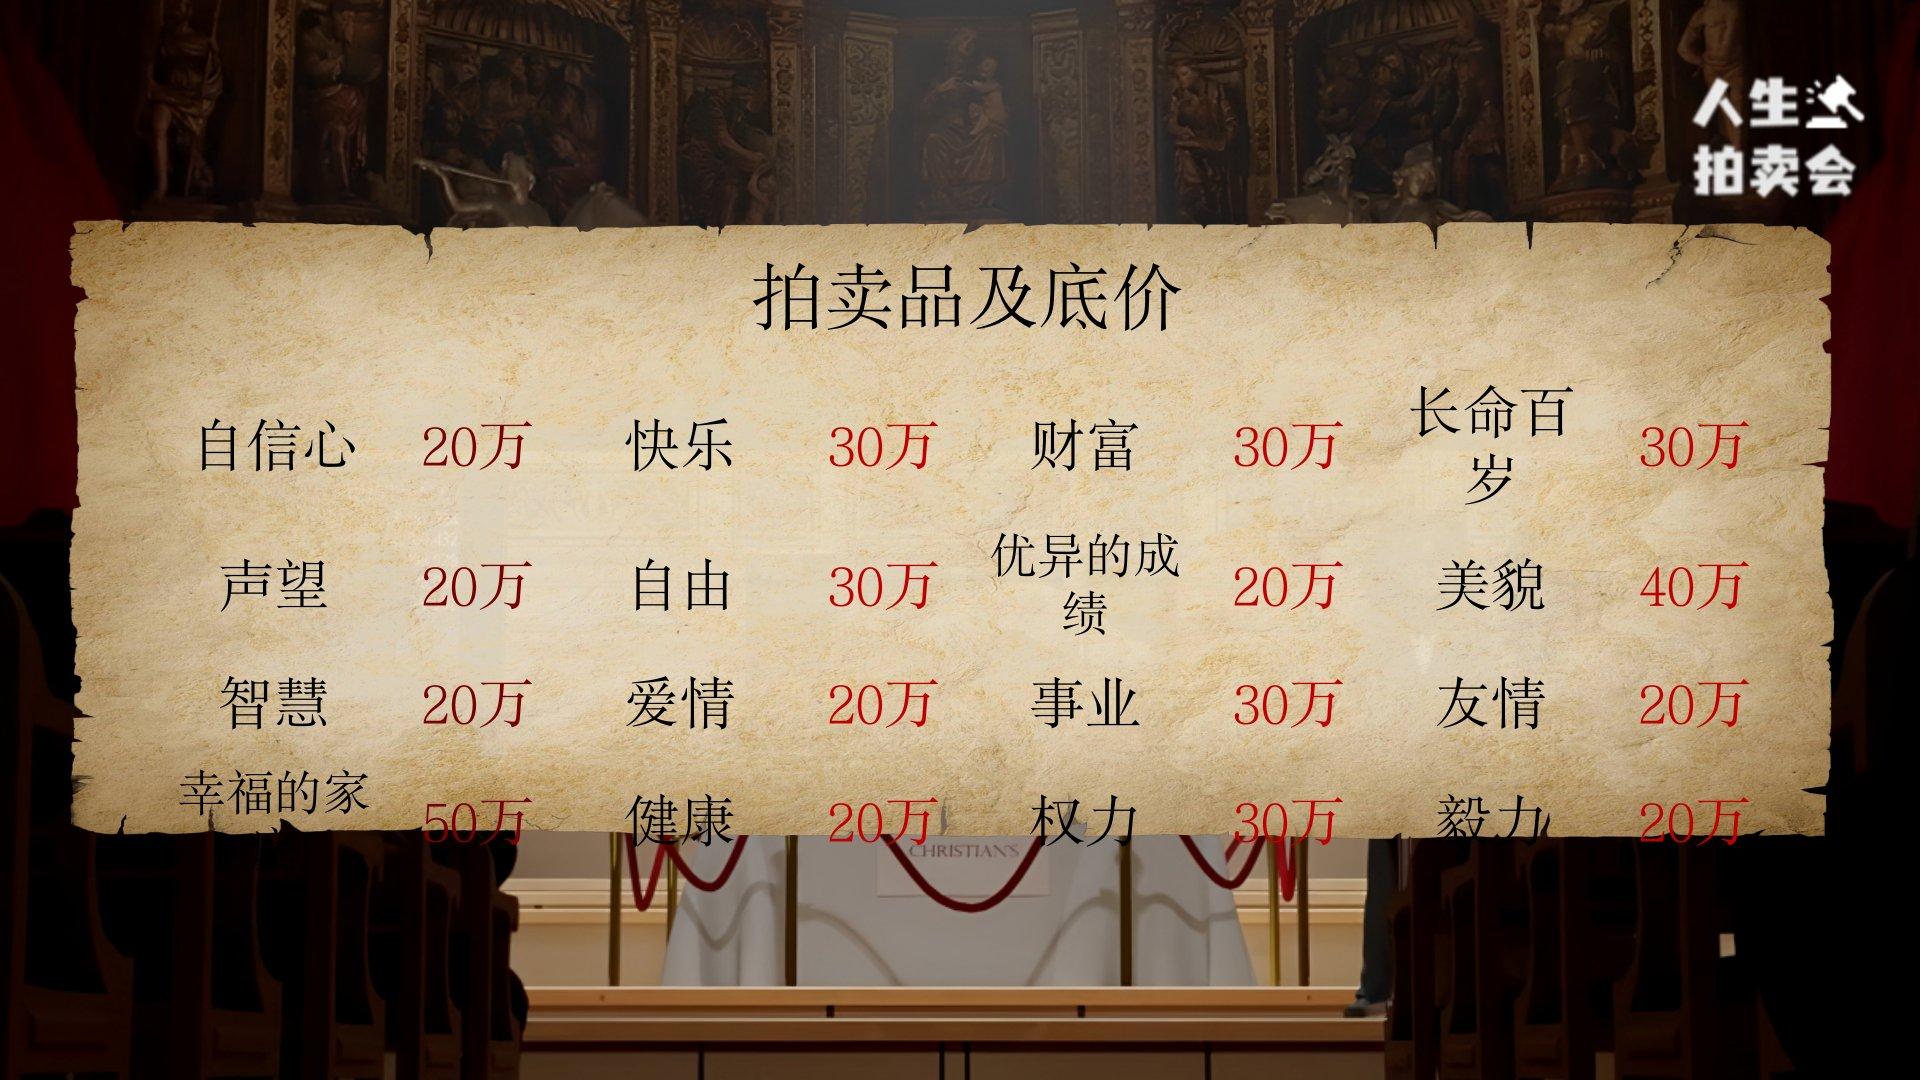 人生
拍卖会
拍卖品及底价
自信心 20万 快乐 30万 财富 30万 长命百
岁 30万
声望 20万 自由 30万 优异的成
绩 20万 美貌 40万
智慧 20万 爱情 20万 事业 30万 友情 20万
幸福的家 50万 健康 20万 权力 30万 毅力 20万
CHRISTIAN'S